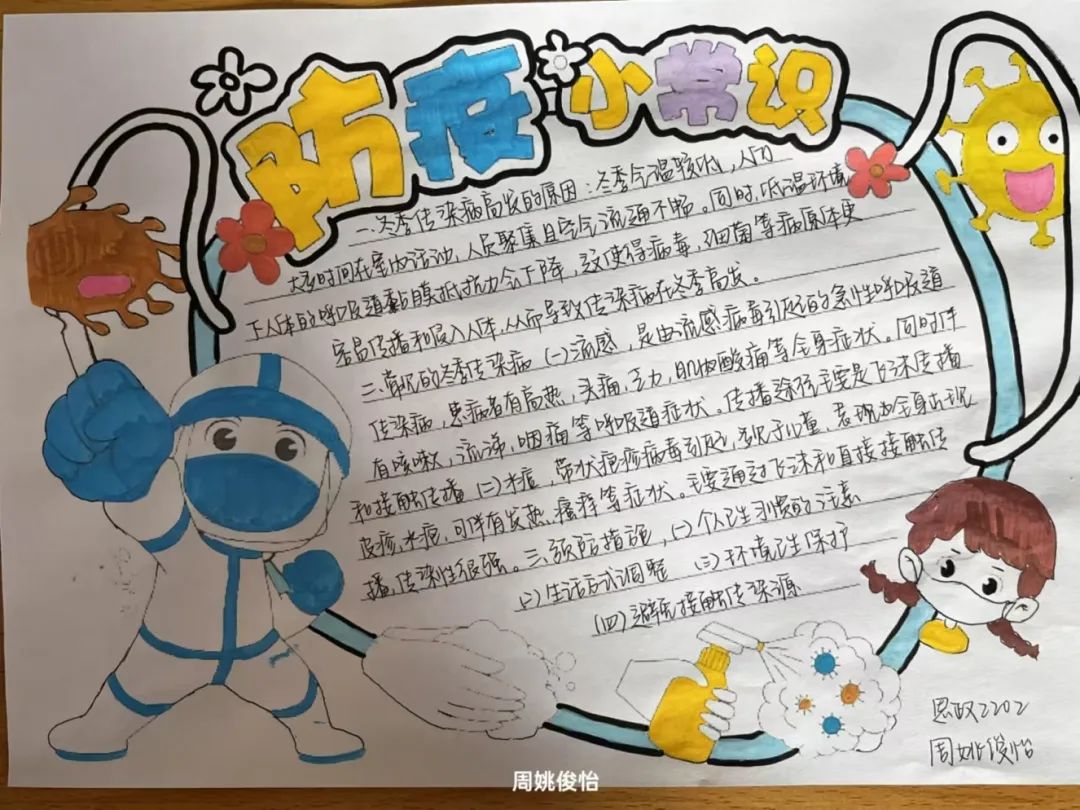 防疫小常识
一.冬季传染病高发的原因：冬季气温较低，人们
大多时间在室内活动，人员聚集且空气流通不畅。同时，低温环境
下人体的呼吸道黏膜抵抗力会下降，这使得病毒、细菌等病原体更
容易传播和侵入人体，从而导致传染病在冬季高发。
二.常见的冬季传染病（一）流感，是由流感病毒引起的急性呼吸道
传染病，患病者有高热，头痛，乏力，肌肉酸痛等全身症状。同时伴
有咳嗽，流涕，咽痛等呼吸道症状。传播途径主要是飞沫传播
和接触传播（二）水痘，带状疱疹病毒引起，多见于儿童，表现为全身出现
皮疹，水疱，可伴有发热，瘙痒等症状。主要通过飞沫和直接接触传
播，传染性很强。三.预防措施，（一）个人卫生习惯的
（二）生活方式调整 （三）环境卫生保护
（四）避免接触传染源
思政2202
周姚俊怡
周姚俊怡